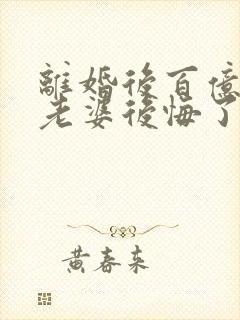 離婚後百億
老婆後悔了
黃春來